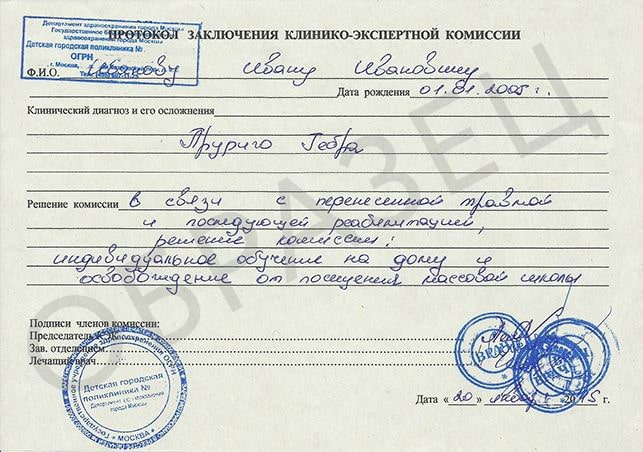 ПРОТОКОЛ ЗАКЛЮЧЕНИЯ КЛИНИКО-ЭКСПЕРТНОЙ КОМИССИИ
Департамент здравоохранения города Москвы
здравоохранения города Москвы
Детская городская поликлиника №
ОГРН
г. Москва,
Ф.И.О. Иванову Ивану Ивановичу
Дата рождения 01.01.2005 г.
Клинический диагноз и его осложнения
Пруриго Гебра
Решение комиссии в связи с перенесенной травмой
и последующей реабилитацией,
решение комиссии:
индивидуальное обучение на дому и
освобождение от посещения массовой школы
ОБРАЗЕЦ
Подписи членов комиссии:
Председатель КЭК
Зав. отделением
Лечащий врач
Детская городская
поликлиника №
Департамент здравоохранения
города Москвы
* МОСКВА *
ВРАЧ
Дата « 20 » января 2015 г.